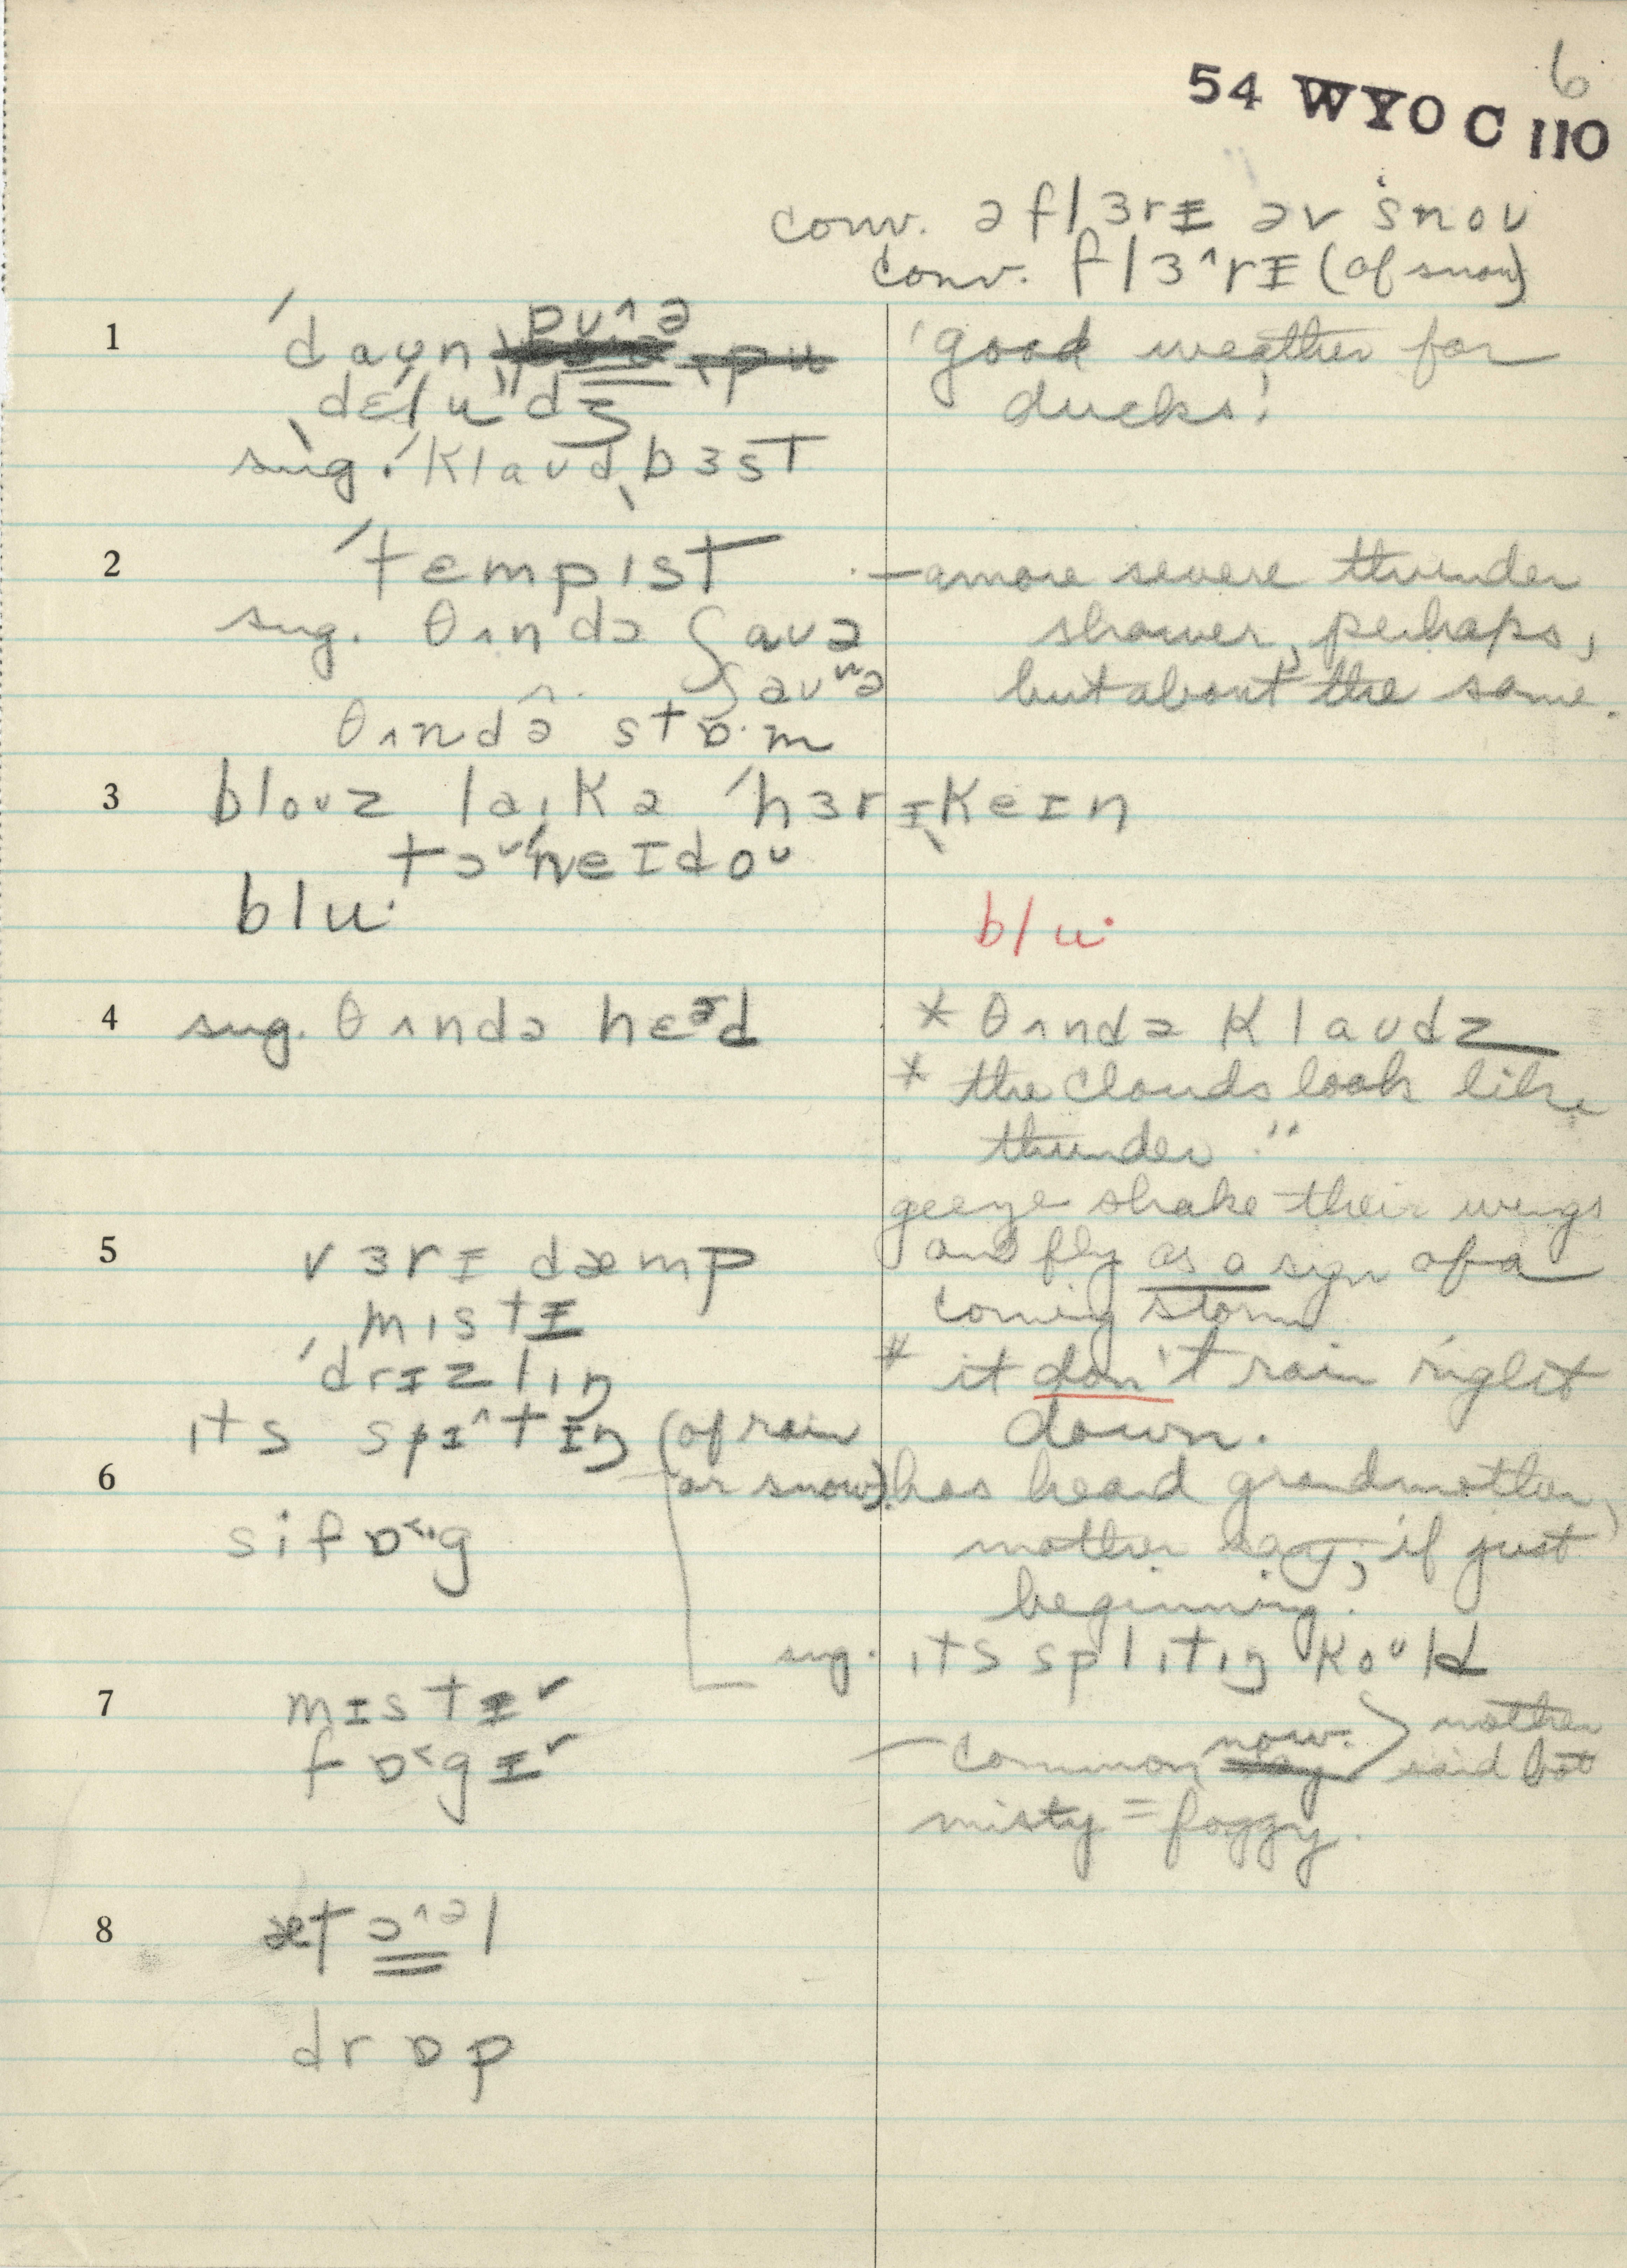 6
54 WYO C 110
conv. ə flɜrɪ əv snoʊ
conv. flɜ^rɪ (of snow)
1 ˈdaʊn pʊ^ə "good weather for
ˌdɛlˈjuˑdʒ ducks!
sug. ˈklaʊdˌbɜst
2 ˈtɛmpɪst — a more severe thunder
sug. θʌndə { aʊə shower, perhaps,
{ aʊʷə but about the same.
θʌndə^ stɒ·m
3 bloʊz laɪk ə ˈhɜrɪˌkeɪn
təˈneɪdoʊ
blu· blu·
4 sug. θʌndə hɛəd * θʌndə klaʊdz
* the clouds look like
thunder."
geeze shake their wings
5 vɜrɪ dæmp and fly as a sign of a
mɪstɪ coming storm
ˈdrɪzlɪŋ * it don't rain right
ɪts spɪ^tɪŋ (of rain down.
6 or snow) has heard grandmother,
sifɒ˂·g mother say, if just
beginning.
sug. ɪts splɪtɪŋ koʊld
7 mɪstɪ˅
fɒ˂gɪ˅ — common now. } mother said but
misty = foggy.
8 æt ɔ^əl
drɒp